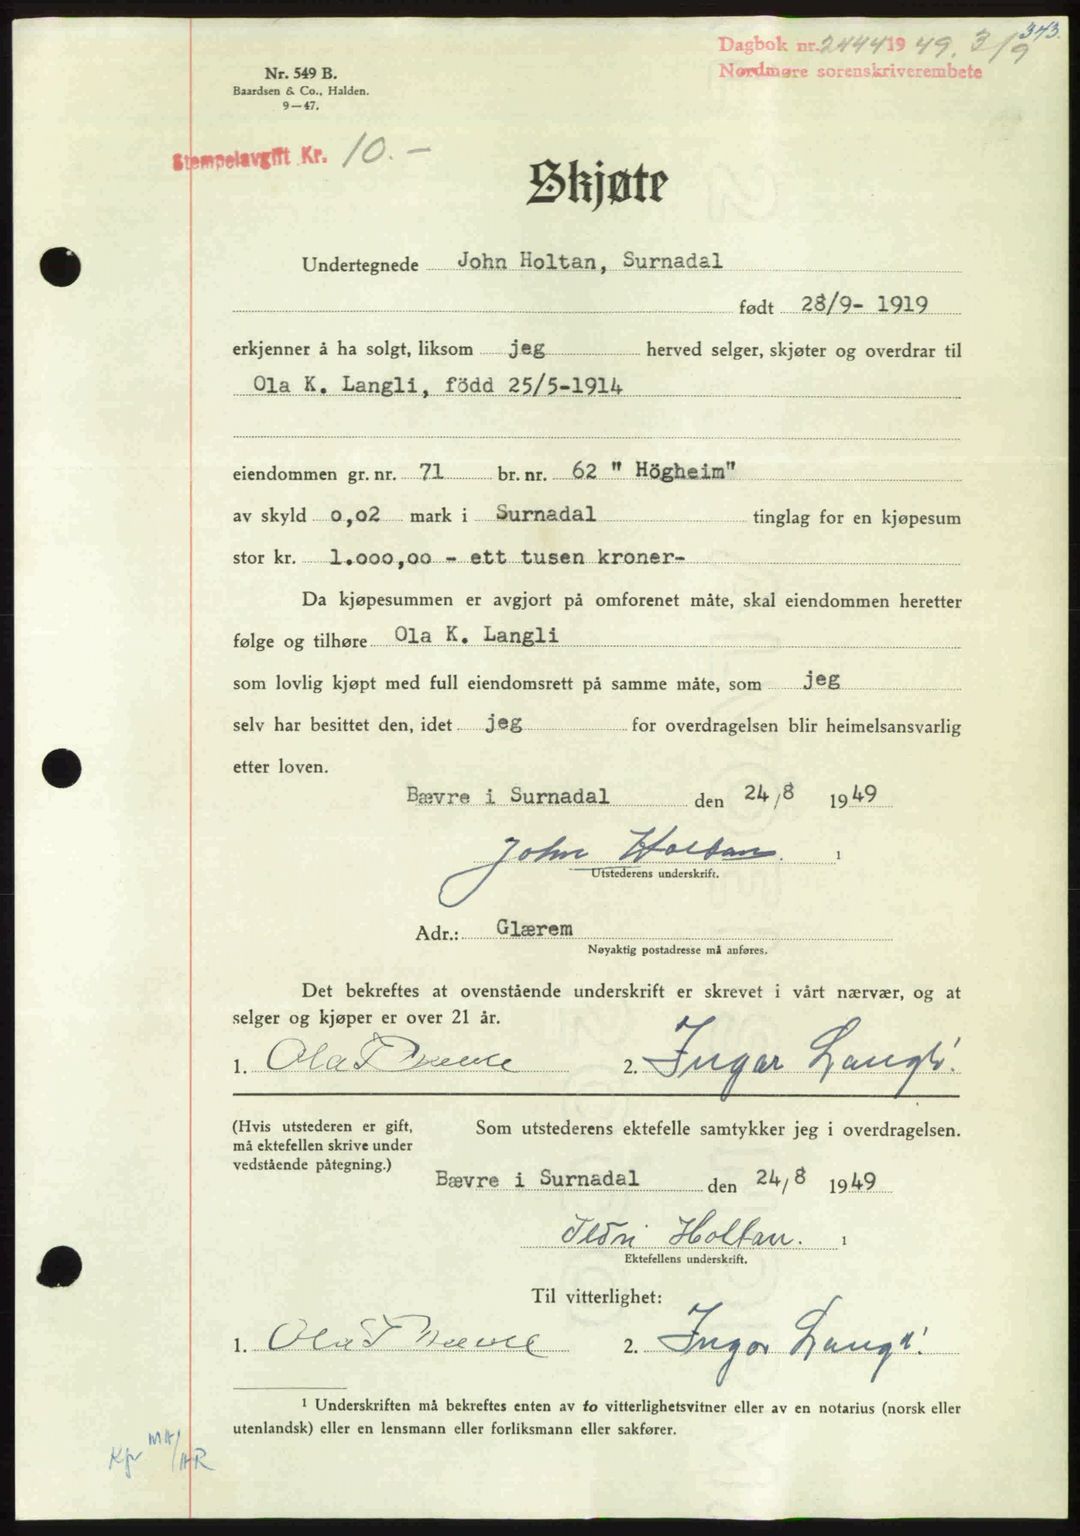 343.
Dagbok nr. 2444 19 49. 3/9
Nordmøre sorenskriverembete
Nr. 549 B.
Baardsen & Co., Halden.
9—47.
Stempelavgift Kr. 10.—
Skjøte
Undertegnede John Holtan, Surnadal
født 28/9- 1919
erkjenner å ha solgt, liksom jeg herved selger, skjøter og overdrar til
Ola K. Langli, född 25/5-1914
eiendommen gr. nr. 71 br. nr. 62 " Högheim"
av skyld 0,02 mark i Surnadal tinglag for en kjøpesum
stor kr. 1.000,00 - ett tusen kroner-
Da kjøpesummen er avgjort på omforenet måte, skal eiendommen heretter
følge og tilhøre Ola K. Langli
som lovlig kjøpt med full eiendomsrett på samme måte, som jeg
selv har besittet den, idet jeg for overdragelsen blir heimelsansvarlig
etter loven.
Bævre i Surnadal den 24/8 1949
John Holtan. 1
Utstederens underskrift.
Adr.: Glærem
Nøyaktig postadresse må anføres.
Det bekreftes at ovenstående underskrift er skrevet i vårt nærvær, og at
selger og kjøper er over 21 år.
1. Ola 2. Ingar Langli
(Hvis utstederen er gift, Som utstederens ektefelle samtykker jeg i overdragelsen.
må ektefellen skrive under
vedstående påtegning.)
Bævre i Surnadal den 24/8 1949
Holtan. 1
Ektefellens underskrift.
Til vitterlighet:
1. Ola 2. Ingar Langli
1 Underskriften må bekreftes enten av to vitterlighetsvitner eller av en notarius (norsk eller
utenlandsk) eller en lensmann eller forliksmann eller sakfører.
Kfr MA/HR